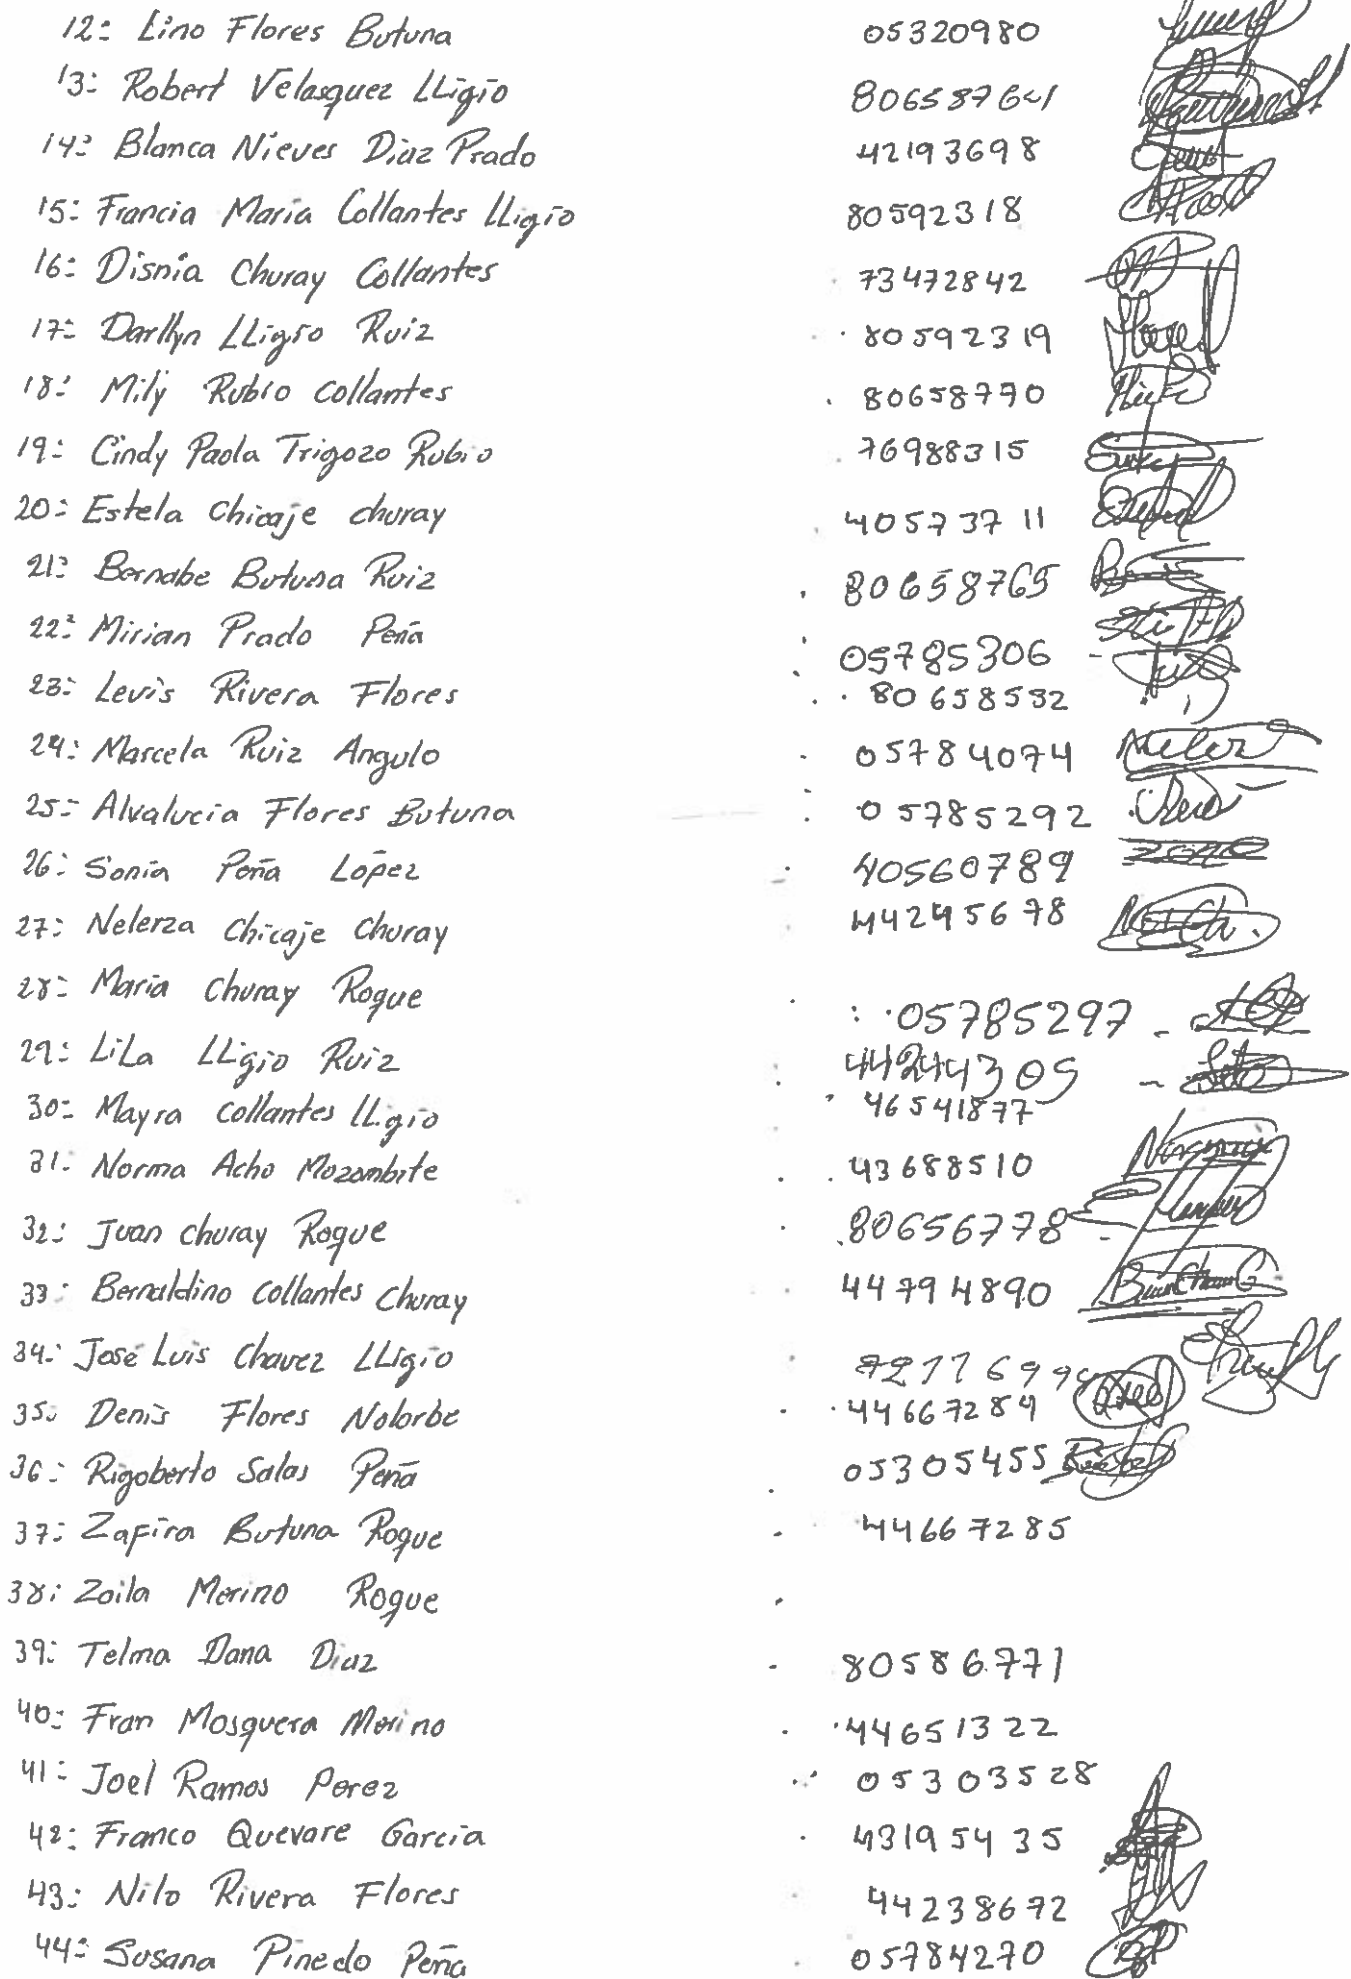 12= Lino Flores Butuna 05320980
13= Robert Velasquez LLigio 80658764
14= Blanca Nieves Diaz Prado 42193698
15= Francia Maria Collantes LLigio 80592318
16= Disnia Churay Collantes 73472842
17= Darllyn LLigio Ruiz 80592319
18= Mily Rubio Collantes 80658770
19= Cindy Paola Trigozo Rubio 76988315
20= Estela Chicaje churay 40573711
21= Bernabe Butuna Ruiz 80658765
22= Mirian Prado Peña 05785306
23= Levis Rivera Flores 80658532
24= Marcela Ruiz Angulo 05784074
25= Alvalucia Flores Butuna 05785292
26= Sonia Peña López 40560789
27= Nelerza Chicaje Churay 44245678
28= Maria Churay Roque 05785297
29= LiLa LLigio Ruiz 44244305
30= Mayra Collantes LLigio 46541877
31= Norma Acho Mozombite 43688510
32= Juan churay Roque 80656778
33= Bernaldino Collantes Churay 44794890
34= José Luis Chavez LLigio
35= Denis Flores Nolorbe 44667284
36= Rigoberto Salas Peña 05305455
37= Zafira Butuna Roque 44667285
38= Zoila Merino Roque
39= Telma Dana Diaz 80586771
40= Fran Mosquera Merino 44651322
41= Joel Ramos Perez 05303528
42= Franco Quevare Garcia 43195435
43= Nilo Rivera Flores 44238672
44= Susana Pinedo Peña 05784270